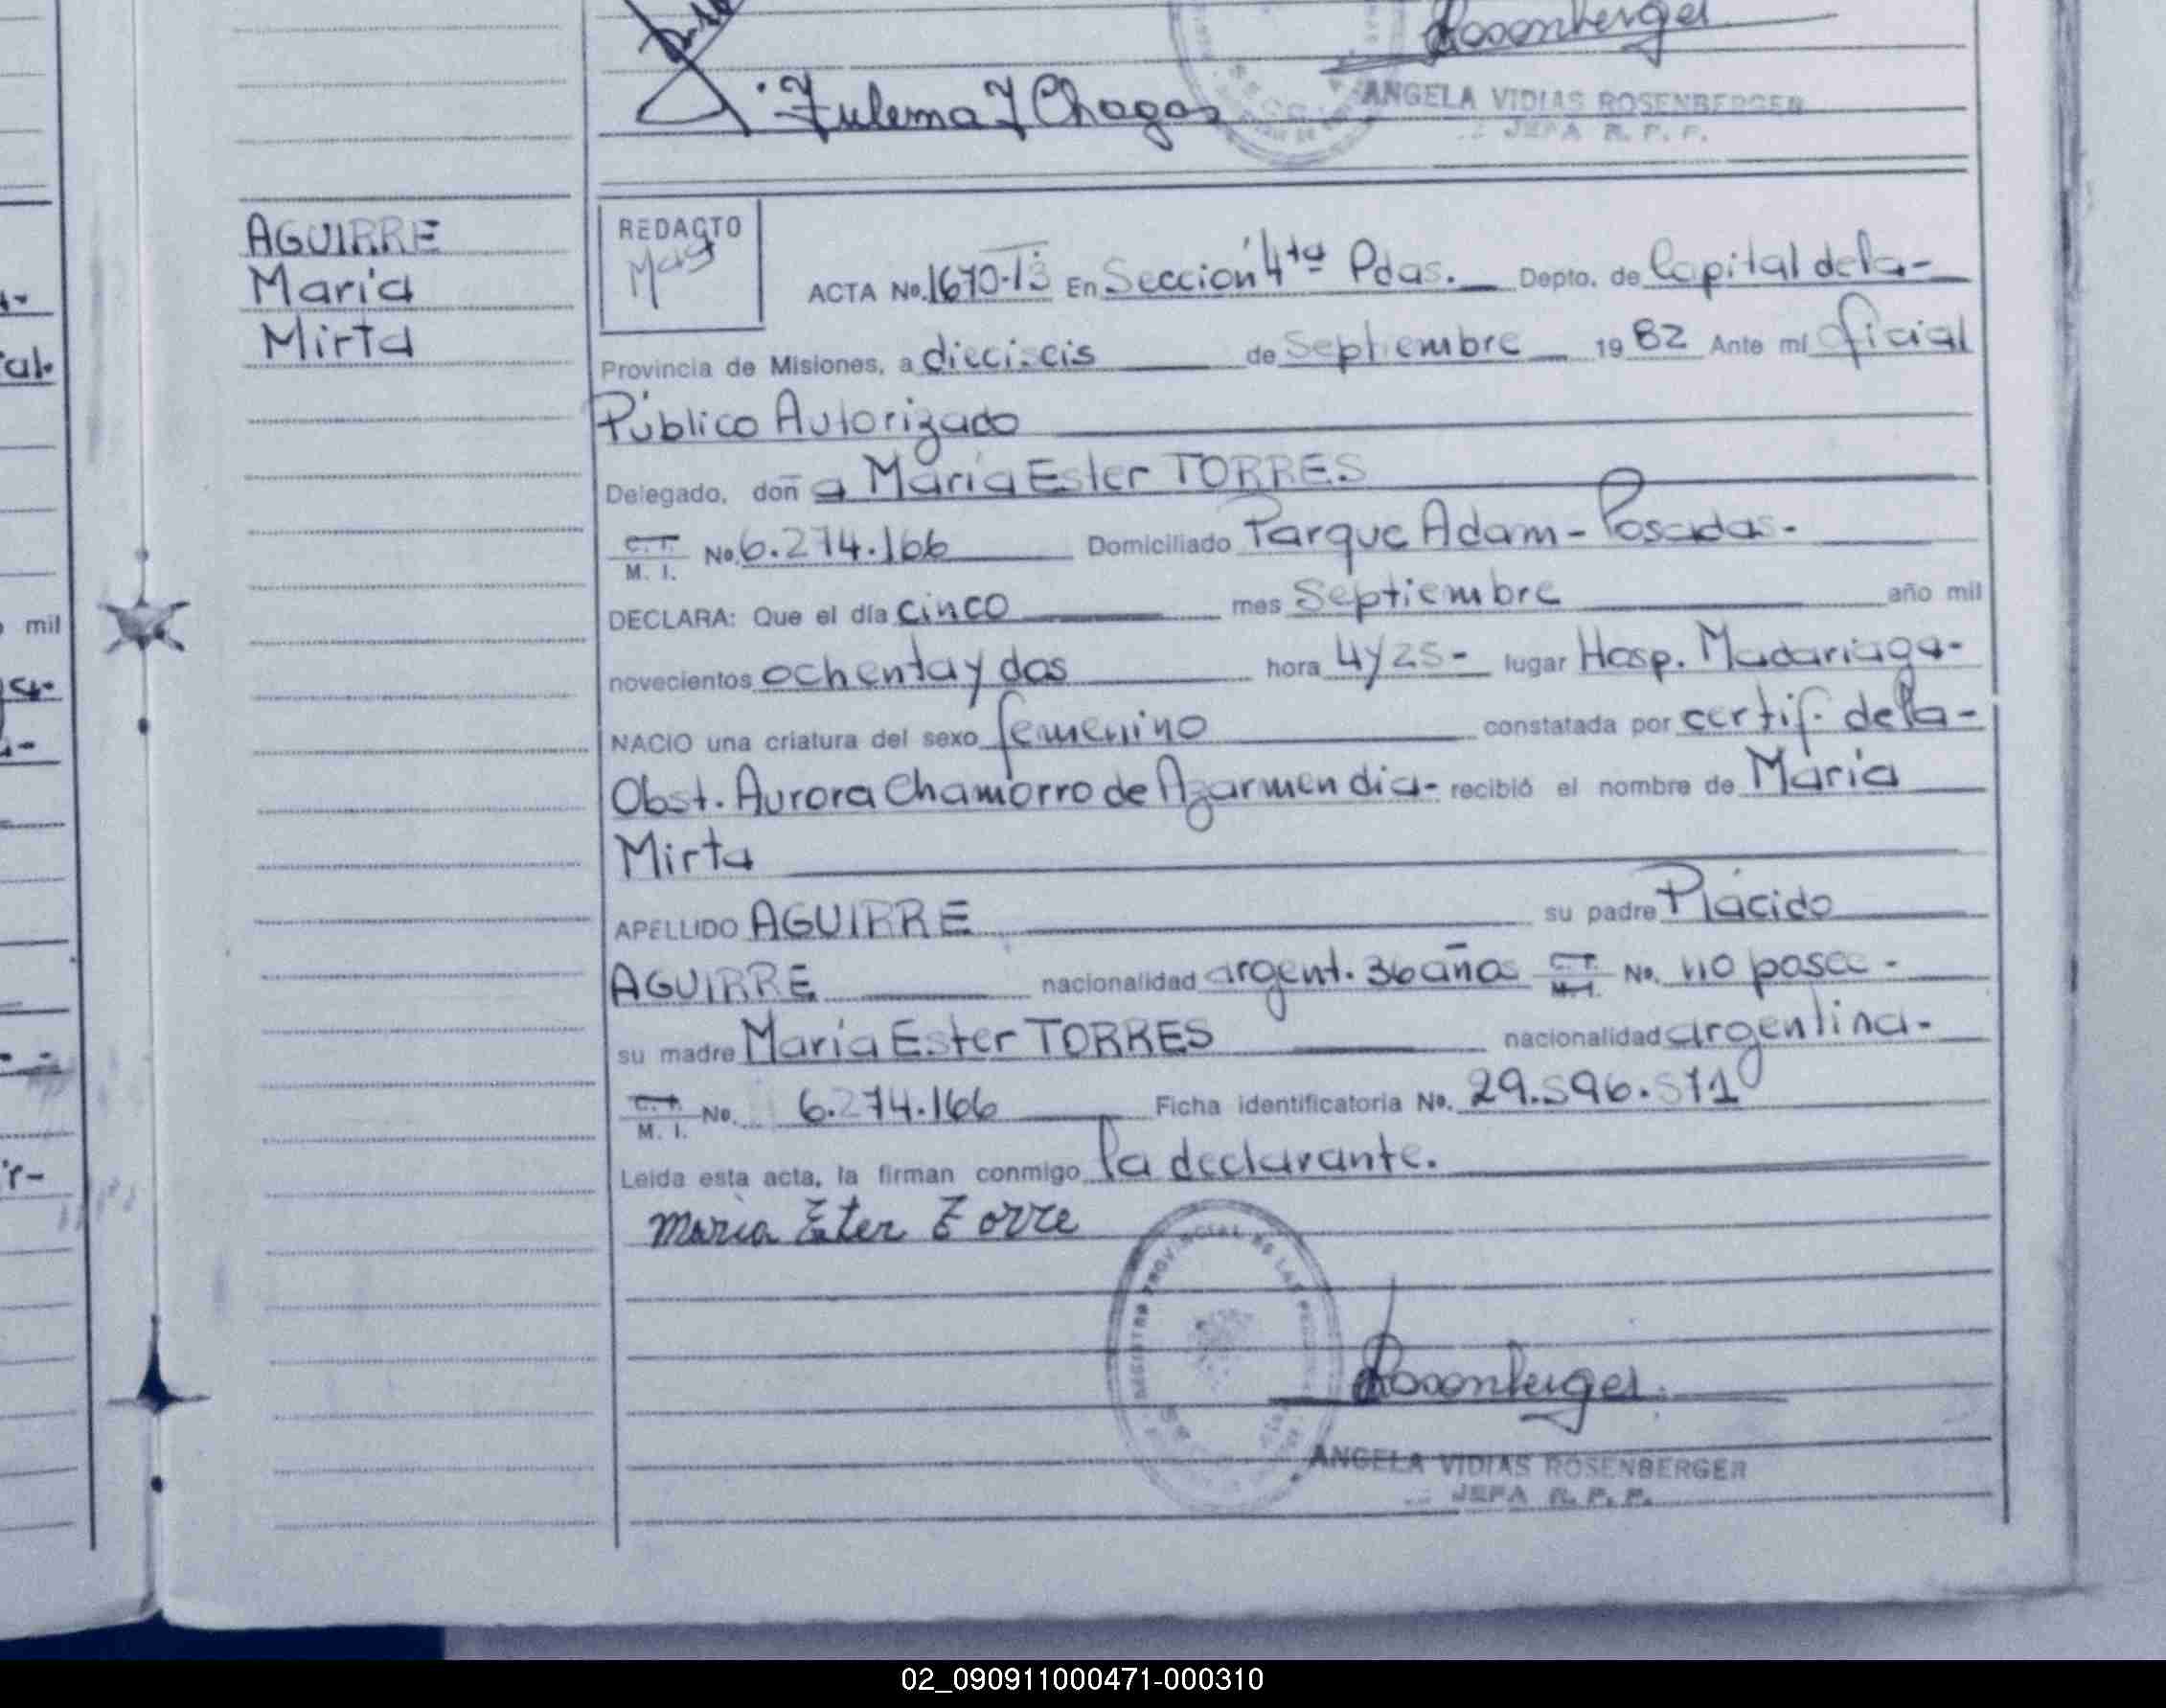 Rosenberger
Zulema J Chagas
ANGELA VIDIAS ROSENBERGER
JEFA R. P. P.
AGUIRRE
María
Mirta
REDACTO
ACTA No. 1670-13 En Sección 4ta Pdas. Depto. de Capital de la-
Provincia de Misiones, a dieciseis de Septiembre 19 82 Ante mi oficial
Público Autorizado
Delegado, doñ a María Ester TORRES
C. I. M. I. No. 6.274.166 Domiciliado Parque Adam - Posadas.
DECLARA: Que el día cinco mes Septiembre año mil
novecientos ochenta y dos hora 4y25- lugar Hosp. Madariaga-
NACIO una criatura del sexo femenino constatada por certif. de la-
Obst. Aurora Chamorro de Azarmendia- recibió el nombre de María
Mirta
APELLIDO AGUIRRE su padre Plácido
AGUIRRE nacionalidad argent. 36 años C. I. M. I. No. no posee.
su madre María Ester TORRES nacionalidad argentina-
C. I. M. I. No. 6.274.166 Ficha identificatoria No. 29.596.571
Leida esta acta, la firman conmigo la declarante.
maria Eter Torre
REGISTRO PROVINCIAL DE LAS
Rosenberger
ANGELA VIDIAS ROSENBERGER
JEFA R. P. P.
mil
02_090911000471-000310